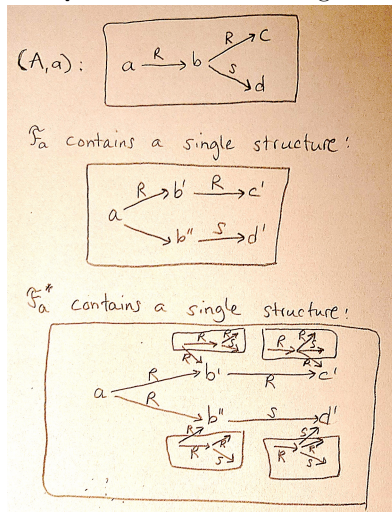 (A,a): a R b R c S d
𝓕̃a contains a single structure:
a R b' R c'
b" S d'
𝓕̃a* contains a single structure:
R R S R R R S R
a R b' R c'
R b" S d'
R R R S S R R S